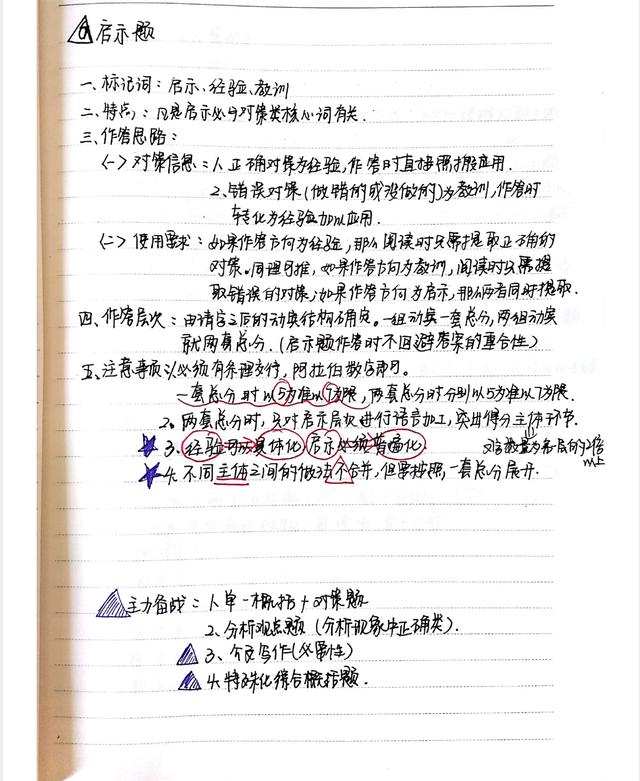 ⑥启示题
一、标记词：启示、经验、教训
二、特点：凡是启示必与对策类核心词有关.
三、作答思路：
(一)对策信息：1.正确对策为经验,作答时直接照搬应用.
2、错误对策(做错的或没做的)为教训,作答时
转化为经验加以应用.
(二)使用要求：如果作答方向为经验,那么阅读时只需提取正确的
对策。同理可推,如果作答方向为教训,阅读时只需提
取错误的对策;如果作答方向为启示,那么两者同时提取.
四、作答层次：由请字之后的动宾结构确定。一组动宾一套总分,两组动宾
就两套总分.(启示题作答时不回避答案的重合性)
五、注意事项：1.必须有条理交行,阿拉伯数字即可。
一套总分时以5为准以7为限,两套总分时分别以5为准以7为限.
2。两套总分时,只对启示层次进行语言加工,突出得分主体环节.
3.经验可以具体化 启示必须普遍化
对策数量为各层的1/2
以上
4.不同主体之间的做法不合并,但要按照一套总分展开.
主力备战：1.单一概括+对策题
2、分析观点题(分析现象中正确类).
3、公文写作(必要性)
4.特殊化综合概括题.